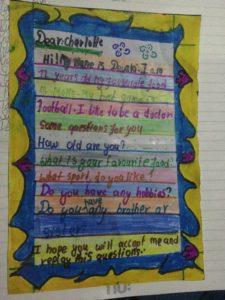 Dear:Charlotte
Hi! My name is Dounia. I am
13 years old my favourite food
is
football. I like to be a doctor
Some questions for you
How old are you?
what is your favourite food?
what sport do you like?
Do you have any hobbies?
Do you have any brother or
sister?
I hope you will accept me and
replay this questions.